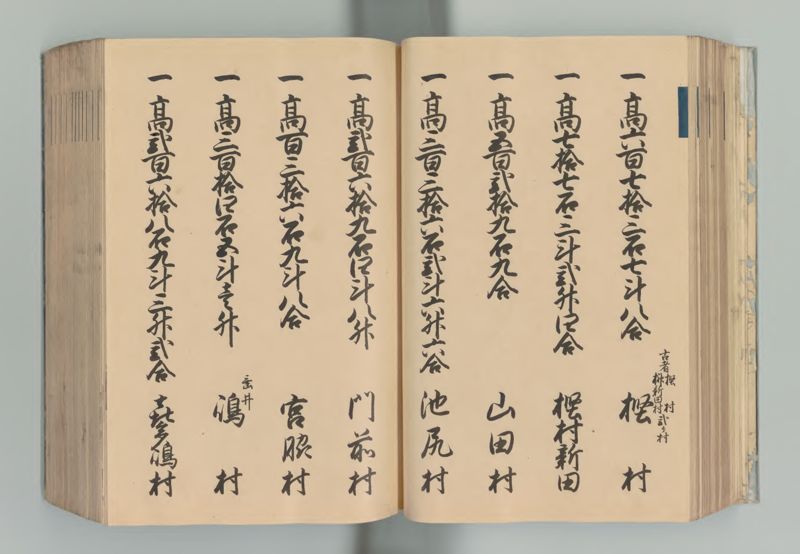 一 高六百七拾三石七斗八合
古者樫村
柳新田村弐ヶ村
樫 村
一 高七拾七石三斗弐升四合 樫村新田
一 高五百弐拾九石九合 山田村
一 高三百三拾六石弐斗六升六合 池尻村
一 高弐百六拾九石四斗八升 門前村
一 高百三拾六石九斗八合 宮脇村
一 高三百拾四石五斗壱升
垂井
嶋 村
一 高弐百六拾八石九斗三升弐合 喜多嶋村